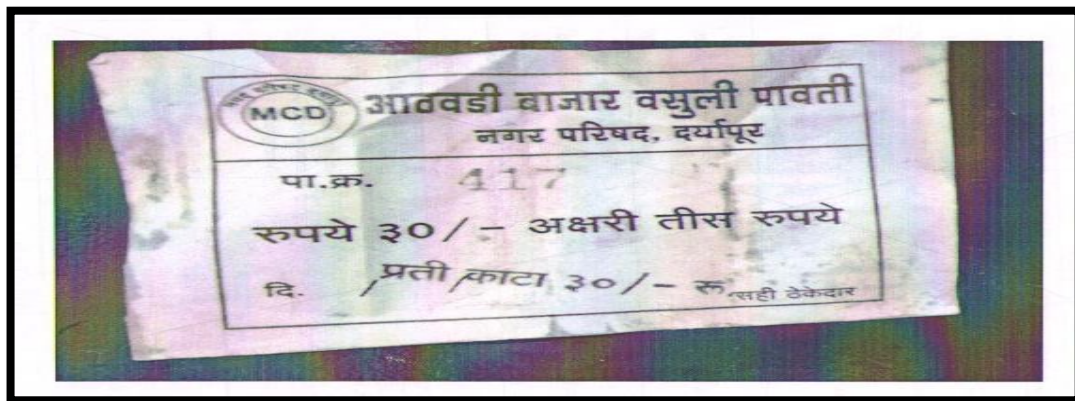 MCD
आठवडी बाजार वसुली पावती
नगर परिषद, दर्यापूर
पा.क्र. 417
रुपये ३०/- अक्षरी तीस रुपये
दि. / प्रती काटा ३०/- रू. सही ठेकेदार